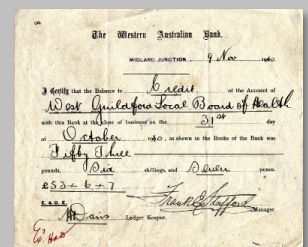 The Western Australian Bank.
MIDLAND JUNCTION 9 Nov 1910
I Certify that the Balance to Credit of the Account of
West Guildford Local Board of Health
with this Bank at the close of business on the 31st day
of October 1910, as shown in the Books of the Bank was
Fifty Three
pounds, Six shillings, and Seven pence.
£53 + 6 + 7
Frank E Stafford
Manager
E.&O.E.
Davis Ledger Keeper.